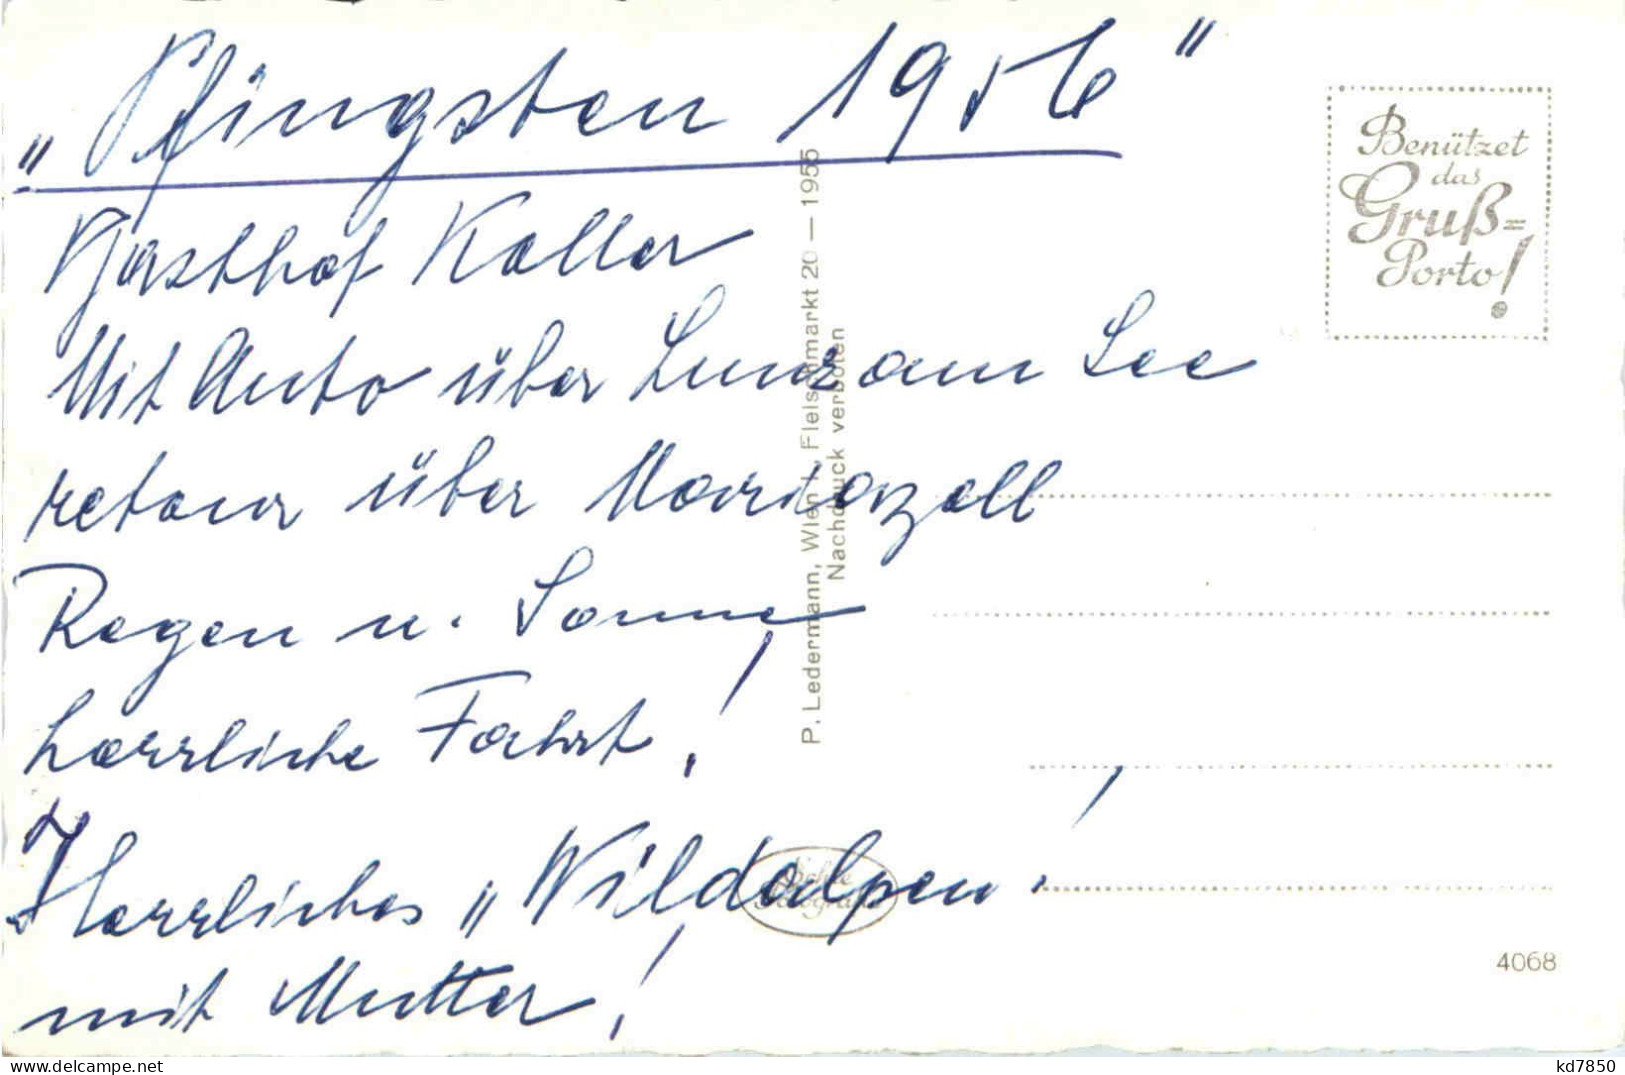 „Pfingsten 1956"
Gasthof Keller
Mit Auto über Lunz am See
retour über Mariazell
Regen u. Sonne
herrliche Fahrt!
Herrliches „Wildalpen!
mit Mutter!
P. Ledermann, Wien I, Fleischmarkt 20 — 1955
Nachdruck verboten
Echte
Fotografie
Benützet
das
Gruß=
Porto!
4068
delcampe.net
kd7850